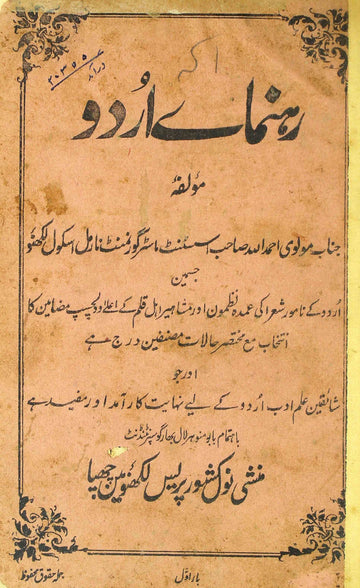 رہنمائے اُردو
مؤلفۂ
جناب مولوی احمد اللہ صاحب اسسٹنٹ ماسٹر گورنمنٹ نارمل اسکول لکھنؤ
جسمین
اُردو کے نامور شعرا کی عمدہ نظمون اور مشاہیر اہل قلم کے اعلا و دلچسپ مضامین کا
انتخاب مع مختصر حالات مصنفین درج ہے
اور جو
شائقین علم ادب اُردو کے لیے نہایت کارآمد اور مفید ہے
باہتمام بابو منوہر لال بھارگو سپرنٹنڈنٹ
منشی نول کشور پریس لکھنؤ مین چھپا
بار اوّل
جملہ حقوق محفوظ